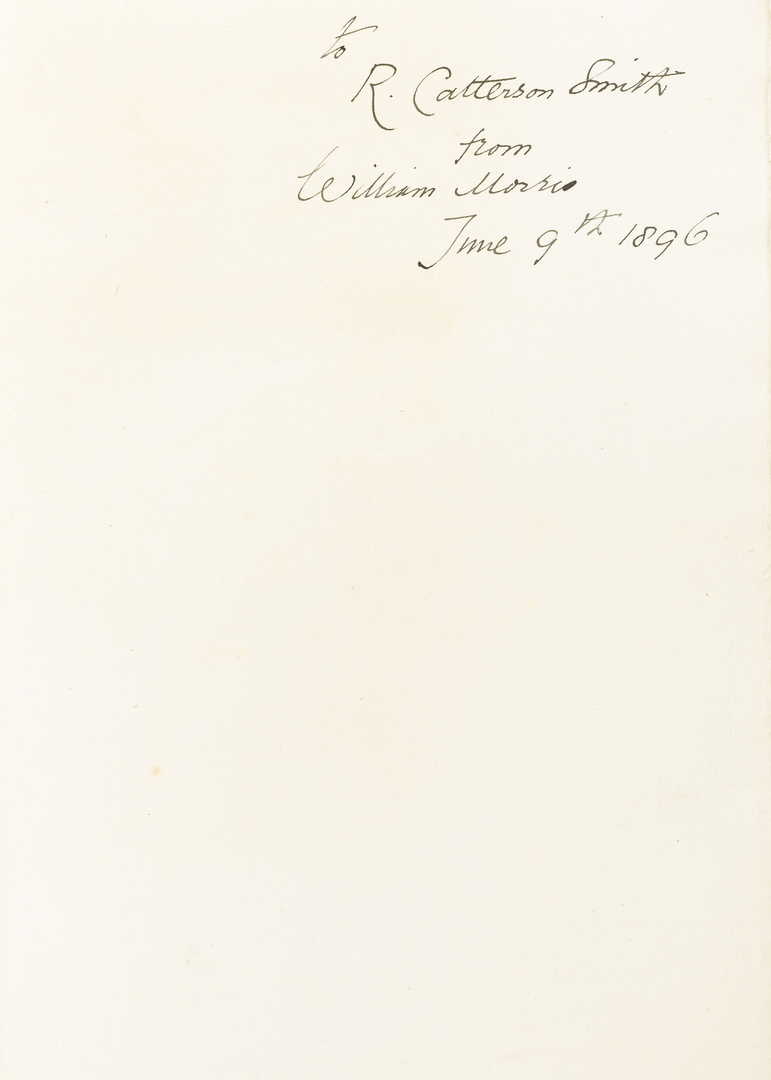 to
R. Catterson Smith
from
William Morris
June 9th 1896